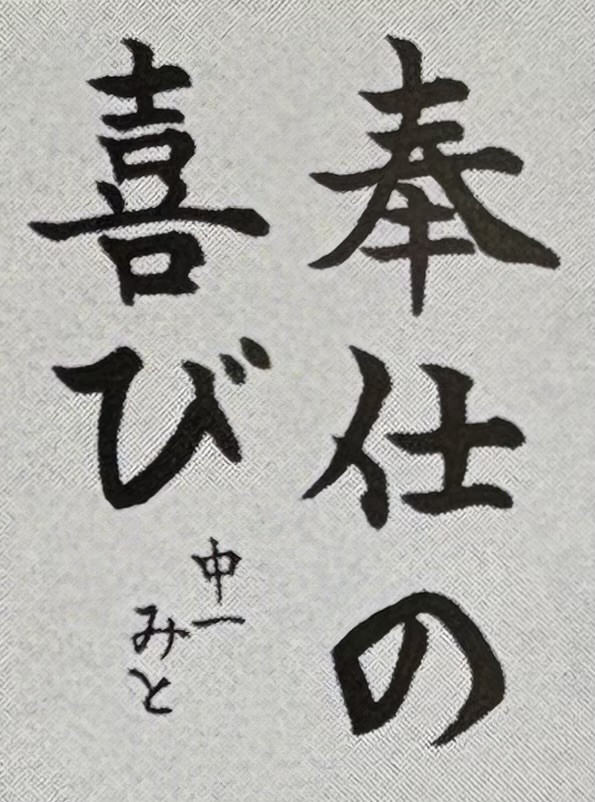 奉仕の
喜び
中一
みと